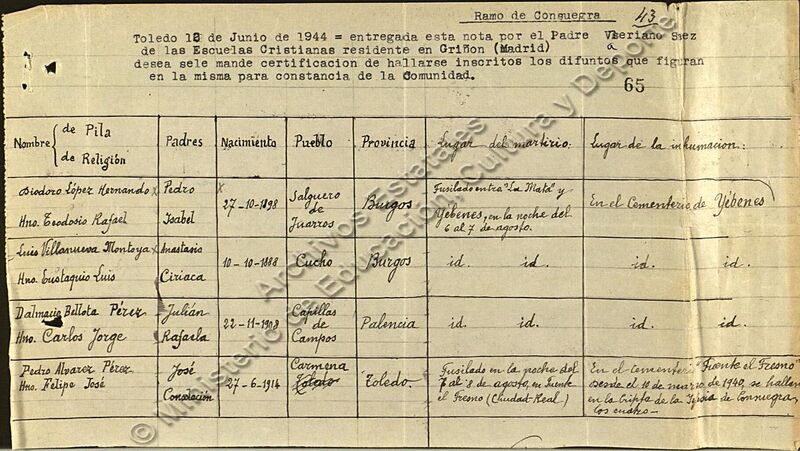 Ramo de Consuegra
43
Toledo 18 de Junio de 1944 = entregada esta nota por el Padre Viberiano Saez
de las Escuelas Cristianas residente en Griñon (Madrid)
desea sele mande certificacion de hallarse inscritos los difuntos que figuran
en la misma para constancia de la Comunidad.
65
Nombre { de Pila
de Religión
Padres
Nacimiento
Pueblo
Provincia
Lugar del martirio:
Lugar de la inhumacion:
Diodoro López Hernando x
Hno. Teodosio Rafael
Pedro
Isabel
27-10-1898
Salguero
de
Juarros
Burgos
Fusilado entre "La Mata" y
Yébenes, en la noche del
6 al 7 de agosto.
En el Cementerio de Yébenes
Luis Villanueva Montoya x
Hno. Eustaquio Luis
Anastasio
Ciriaca
10-10-1888
Cucho
Burgos
id. id.
id. id.
Dalmacio Bellota Pérez
Hno. Carlos Jorge
Julián
Rafaela
22-11-1908
Capillas
de
Campos
Palencia
id. id.
id. id.
Pedro Alvarez Pérez
Hno. Felipe José
José
Consolación
27-6-1914
Carmena
Toledo
Toledo.
Fusilado en la noche del
7 al 8 de agosto, en Fuente
el Fresno (Ciudad Real)
En el cementerio "Fuente el Fresno"
Desde el 10 de marzo de 1940, se hallan
en la Cripta de la Iglesia de Consuegra,
los cuatro—
© Ministerio de Educación, Cultura y Deporte
Archivos Estatales